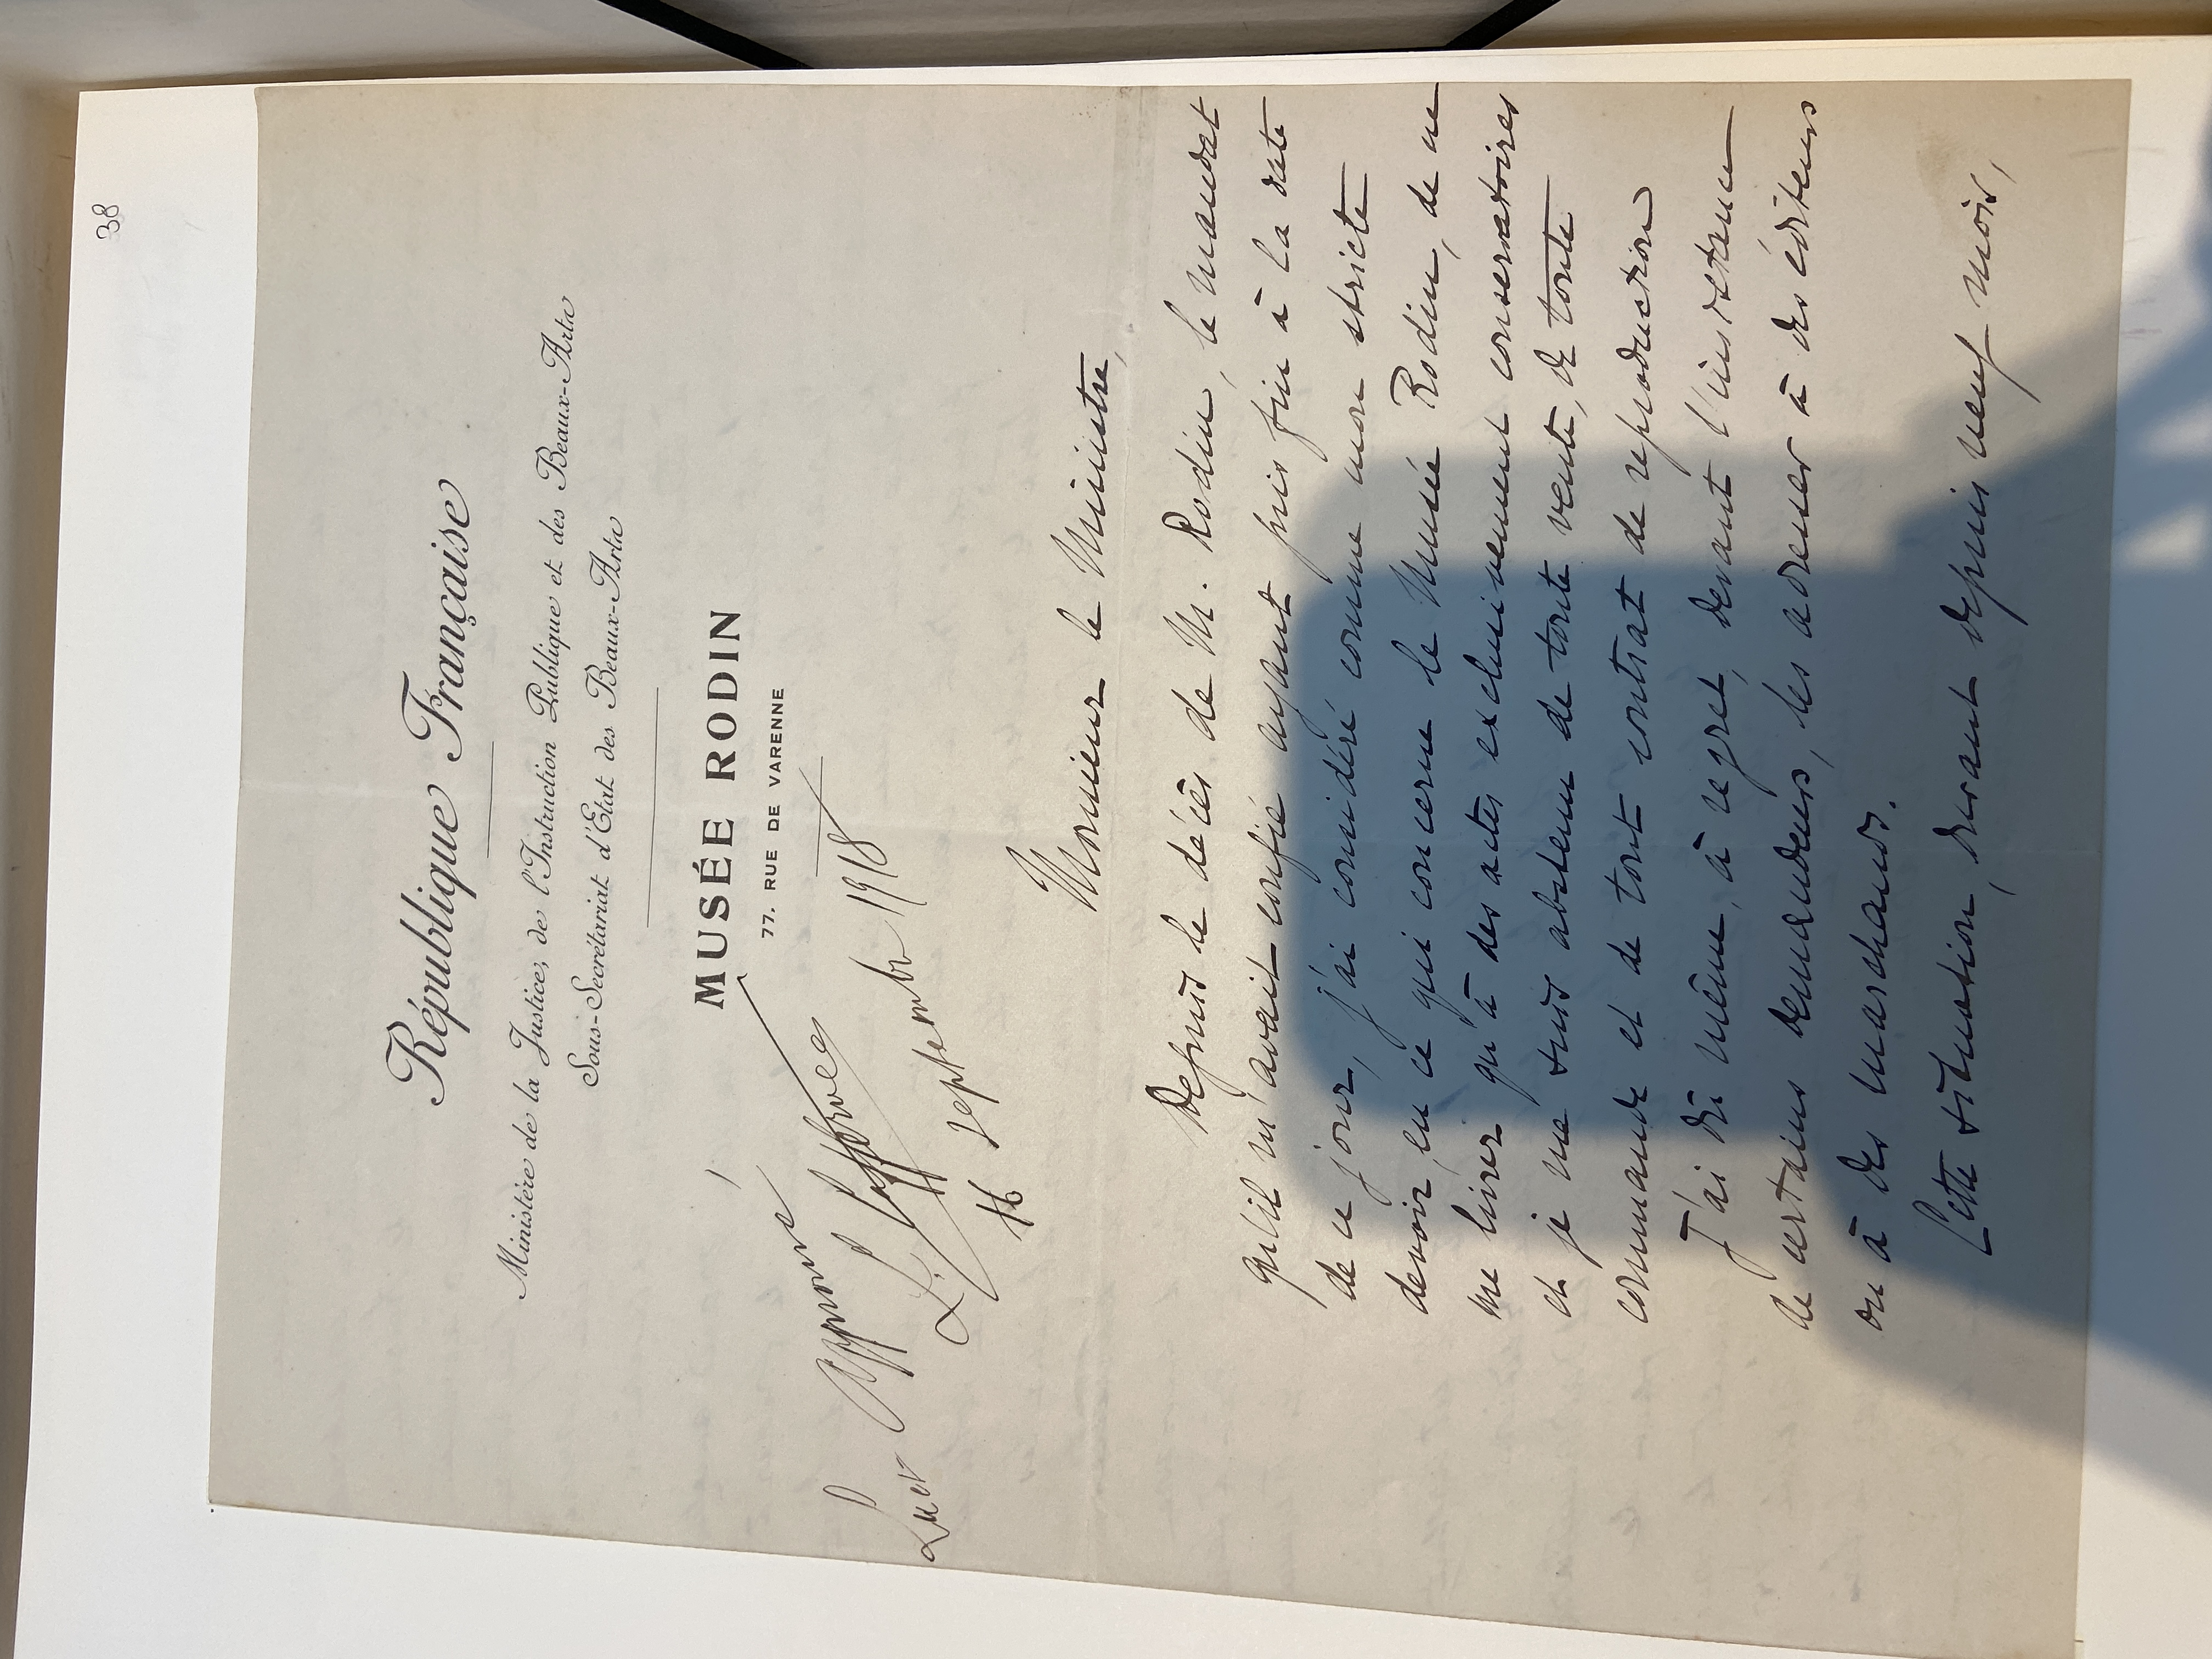 38
République Française
Ministère de la Justice, de l'Instruction Publique et des Beaux-Arts
Sous-Secrétariat d'Etat des Beaux-Arts
MUSÉE RODIN
77, RUE DE VARENNE
Lu et approuvé
L. Lafferre
16 septembre 1918
Monsieur le Ministre,
Depuis le décès de M. Rodin, le mandat
qu'il m'avait confié ayant pris fin à la date
de ce jour, j'ai considéré comme mon stricte
devoir, en ce qui concerne le Musée Rodin, de ne
me livrer qu'à des actes exclusivement conservatoires
et je me suis abstenu de toute vente, de toute
commande et de tout contrat de reproduction
J'ai dû même, à regret, devant l'insistance
de certains demandeurs, les adresser à des éditeurs
ou à des marchands.
Cette situation, durant depuis neuf mois,